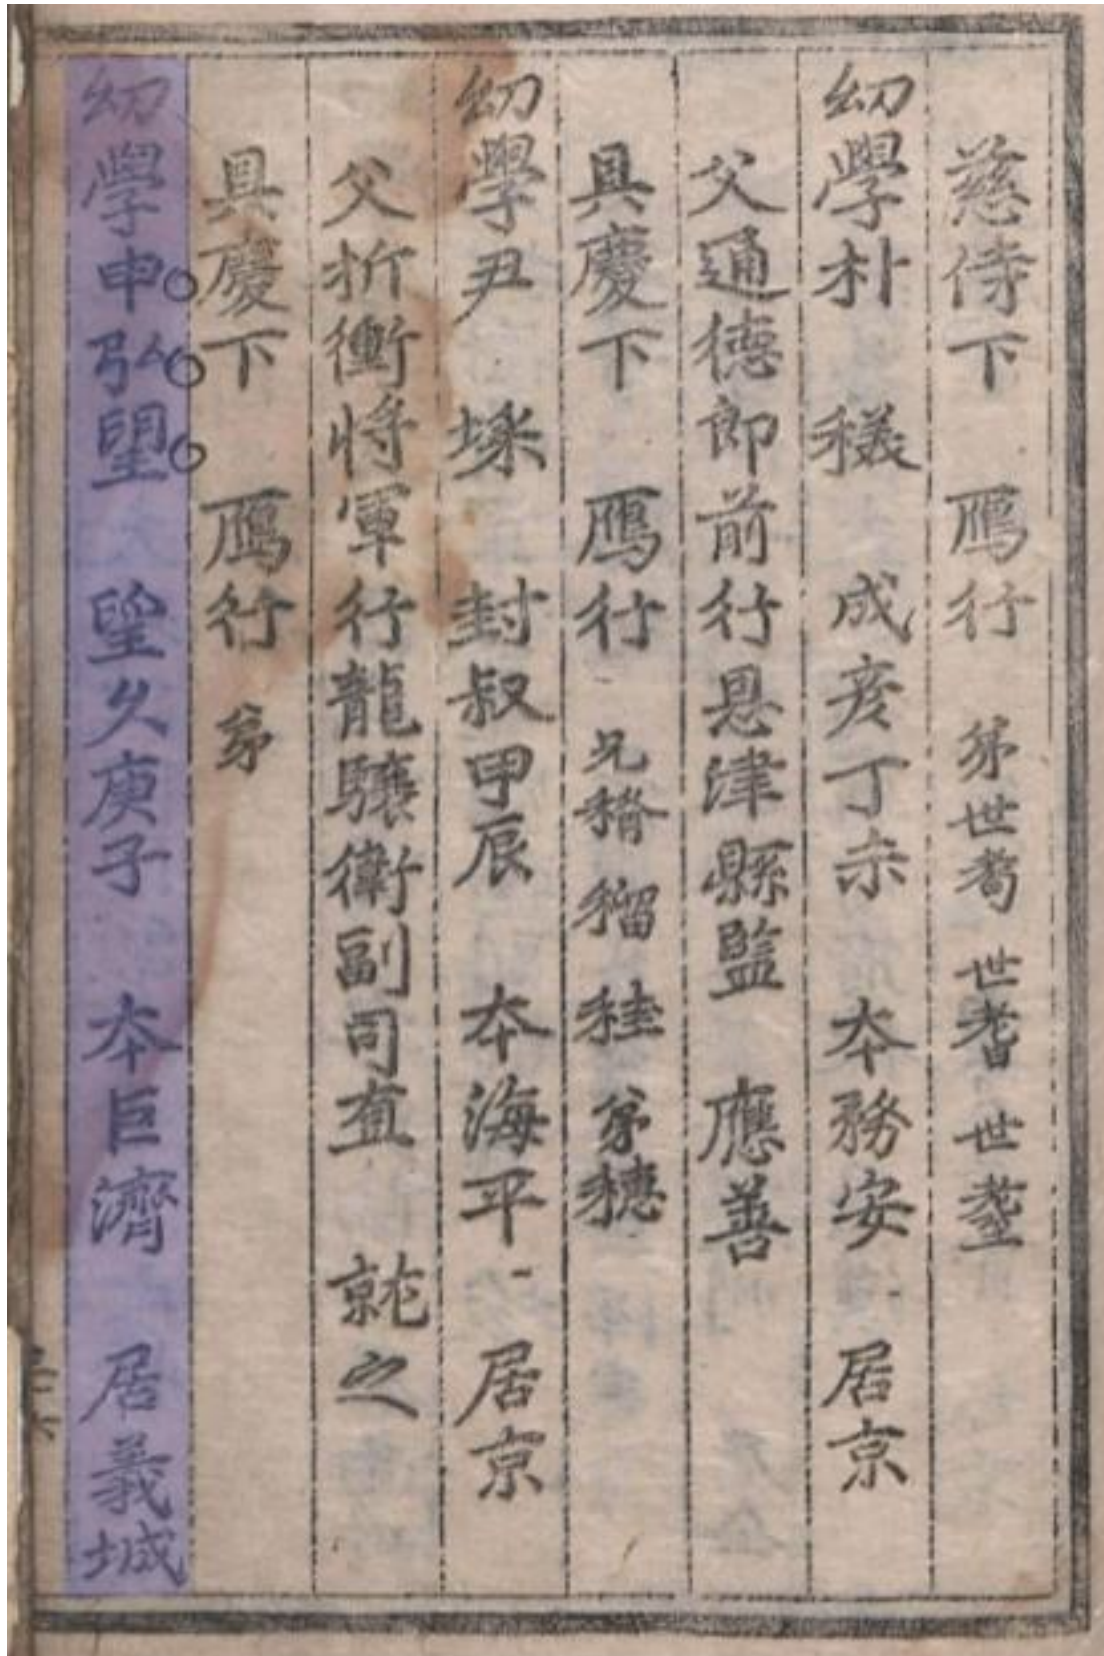 慈侍下 鴈行 弟世蓍 世耆 世耋
幼學朴 檥 成彦丁未 本務安 居京
父通德郎前行恩津縣監 應善
具慶下 鴈行 兄穧 穭 秸 弟穗
幼學尹 埰 封叔甲辰 本海平 居京
父折衝將軍行龍驤衛副司直 就之
具慶下 鴈行 弟
幼學申弘望 望久庚子 本巨濟 居義城